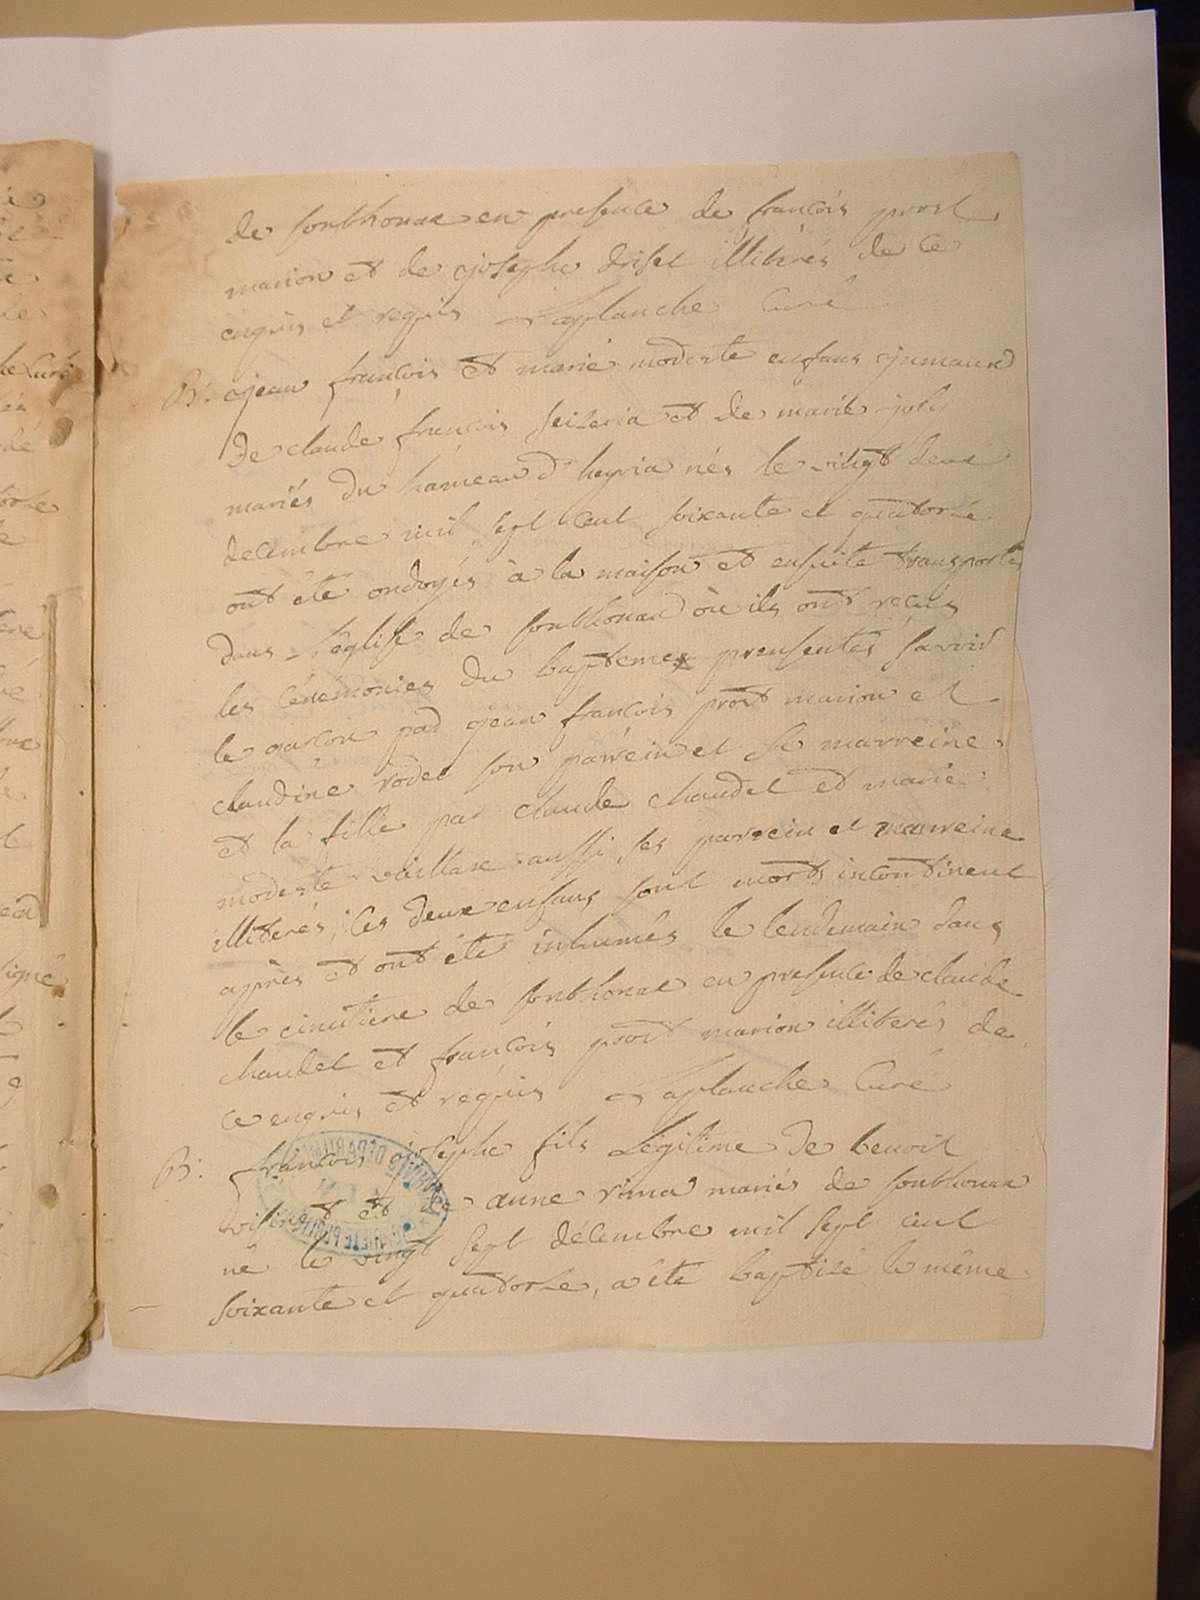 de sonthonax en presence de françois prost
marion et de joseph driset illiterés de ce
enquis et requis Laplanche Curé
B: jean françois et marie modeste enfans jumeaux
de claude françois seizeria et de marie joly
mariés du hameau d'heyria nés le vingt deux
decembre mil sept cent soixante et quatorze
ont été ondoyés à la maison et ensuite transportés
dans l'église de sonthonax où ils ont reçus
les cérémonies du baptemes presentés savoir
le garcon par jean françois prost marion et
claudine rodet son parrein et sa marreine
et la fille par claude chaudet et marie
modeste vaillare aussi ses parrein et marreine
illiterés, ces deux enfans sont morts incontinent
après et ont été inhumés le lendemain dans
le cimitiere de sonthonax en presence de claude
chaudet et françois prost marion illiterés de
ce enquis et requis Laplanche Curé
B: françois joseph fils Légitime de benoit
et de anne mariés de sonthonax
né le vingt sept décembre mil sept cent
soixante et quatorze, a été baptizé le même